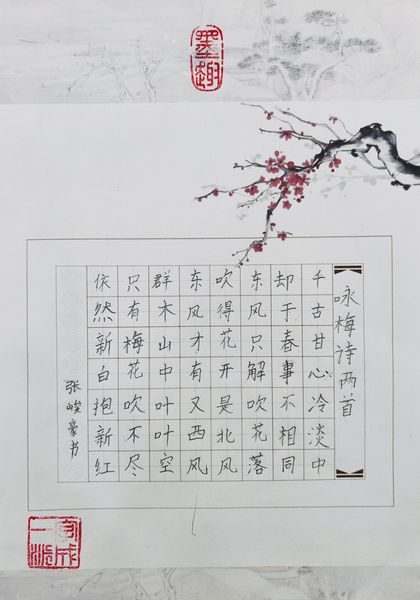 墨趣
咏梅诗两首
千古甘心冷淡中
却于春事不相同
东风只解吹花落
吹得花开是北风
东风才有又西风
群木山中叶叶空
只有梅花吹不尽
依然新白抱新红
张峻豪书